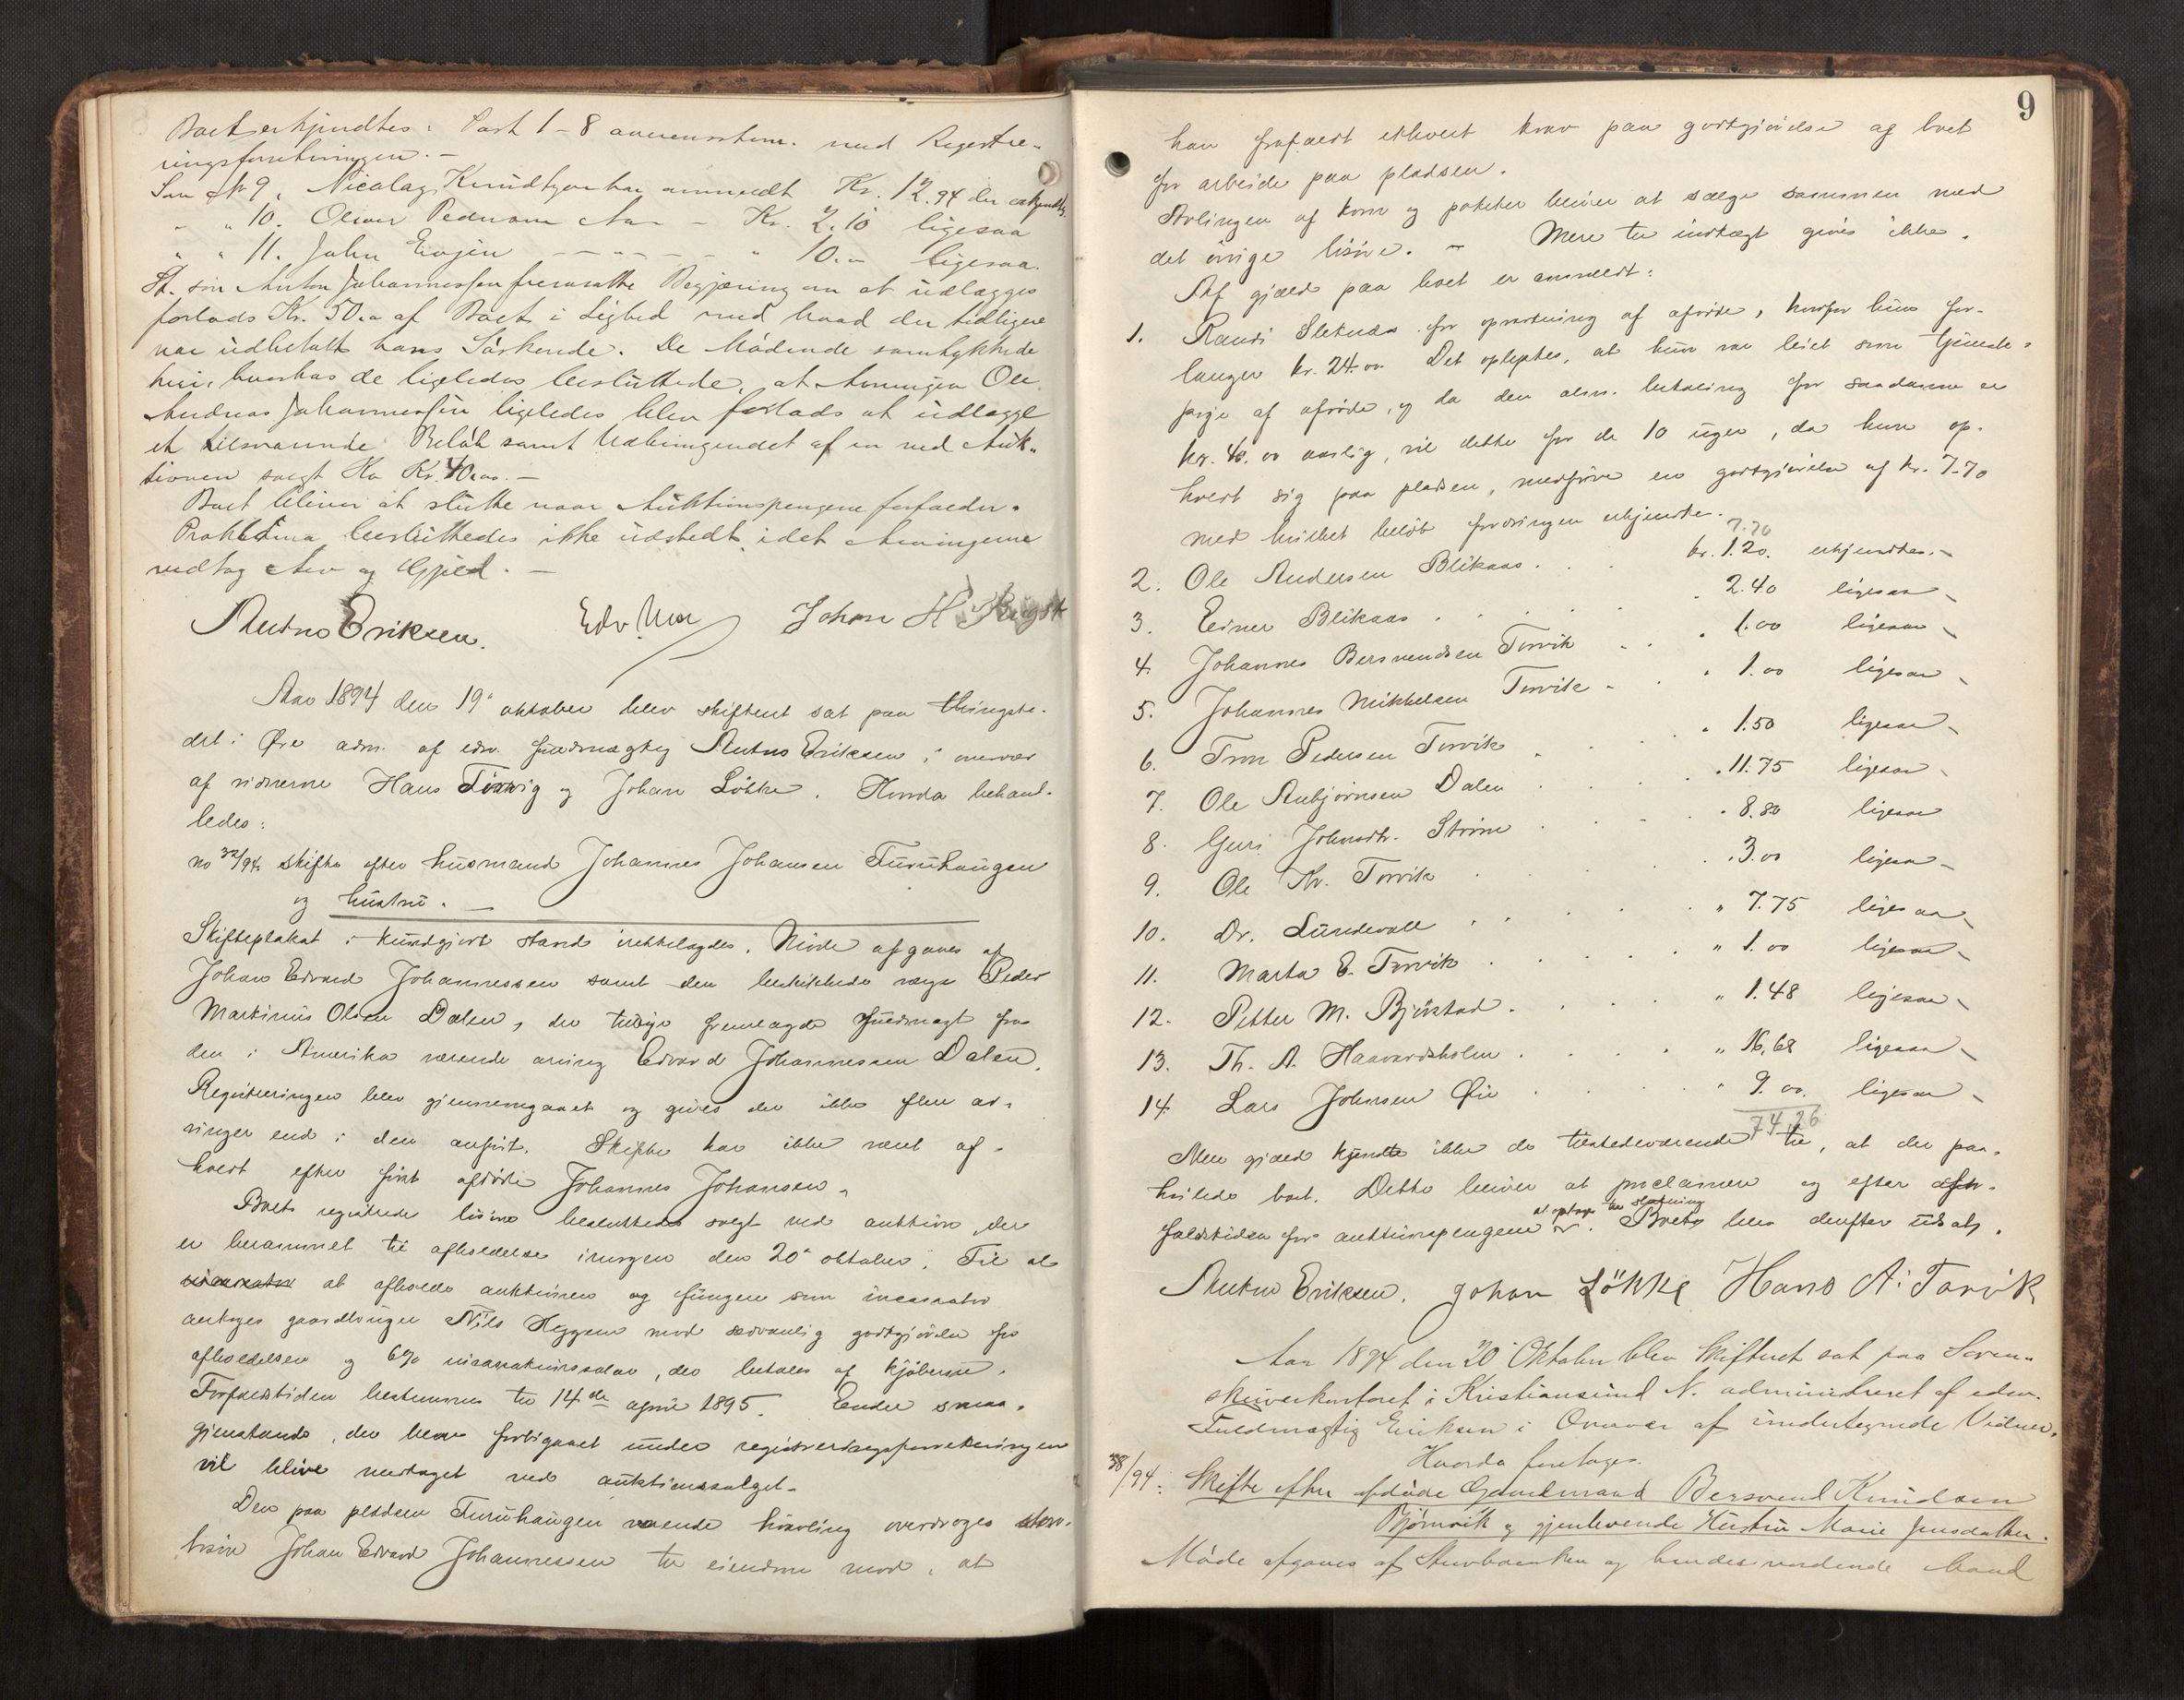 Boet erkjendtes: Post 1-8 overensstem. med Registre-
ringsforretningen. -
Som No 9. Nicolay Knudtzon har anmeldt Kr. 12.94 der erkjendtes
" " 10. Oliver Pedersen - Kr. 2.10 ligesaa
" " 11. John Evjen - - - - - " 10.- ligesaa.
St. søn Anton Johannessen fremsatte Begjæring om at udlægges
forlods Kr. 50.00 af Boet i Lighed med hvad der tidligere
var udbetalt hans Søskende. De Mødende samtykkede
heri, hvorhos de ligeledes besluttede, at Arvingen Ole
Andreas Johannessen ligeledes blev forlods at udlægge
et tilsvarende Beløb samt Udbringendet af en ved Auk-
tionen solgt Ko Kr. 40.00. -
Boet bliver at slutte naar Auktionspengene forfalder.
Proklama besluttedes ikke udstedt, idet Arvingerne
vedtog Arv og Gjæld. -
Anton Eriksen. Edv. Moe Johan H
Aar 1894 den 19de oktober blev skifteret sat paa thingste-
det i Øre adm. af edsv. fuldmægtig Anton Eriksen i overvær
af vidnerne Hans Torvig og Johan Løkke. Hvorda behand-
ledes:
no 32/94. Skifte efter husmand Johannes Johansen Furuhaugen
og hustru. -
Skifteplakat i kundgjort stand irettelagdes. Møde afgaves af
Johan Edvard Johannessen samt den beskikkede værge Peder
Martinus Olsen Dalen, der tillige fremlagde fuldmagt fra
den i Amerika værende arving Edvard Johannessen Dalen.
Registreringen blev gjennemgaaet og gives der ikke flere ar-
vinger end i den anført. Skifte har ikke været af-
holdt efter først afdøde Johannes Johansen.
Boets registrede løsøre besluttedes solgt ved auktion, der
er berammet til afholdelse imorgen den 20de oktober. Til at
at afholde auktionen og fungere som incassator
antoges gaardbruger Nils Heggem mod sædvanlig godtgjørelse for
afholdelsen og 6% incassationssalær, der betales af kjøberne.
Forfaldstiden bestemmes til 14de april 1895. Endel smaa-
gjenstande, der blev forbigaaet under registreringsforretningen
vil blive medtaget ved auktionssalget.
Den paa pladsen Furuhaugen værende høavling overdroges
Johan Edvard Johannessen til eiendom mod, at
9
han frafaldt ethvert krav paa godtgjørelse af boet
for arbeide paa pladsen.
Avlingen af korn og poteter bliver at sælge sammen med
det øvrige løsøre. - Mere til indtægt gives ikke.
Af gjæld paa boet er anmeldt:
1. Randi Sletnes for opvartning af afdøde, hvorfor hun for-
langer kr. 24.00. Det oplystes, at hun var leiet som tjeneste-
pige af afdøde, og da den alm. betaling for saadanne er
kr. 40.00 aarlig, vil dette for de 10 uger, da hun op-
holdt sig paa pladsen, medføre en godtgjørelse af kr. 7.70
med hvilket beløb fordringen erkjendte.
7.70
2. Ole Andersen Blikaas . . kr. 1.20. erkjendtes. -
3. Einer Blikaas . . . . 2.40 ligesaa -
4. Johannes Bersvendsen Torvik . . . 1.00 ligesaa -
5. Johannes Mikkelsen Torvik . . . 1.00 ligesaa -
6. Tron Pedersen Torvik . . . 1.50 ligesaa -
7. Ole Anbjørnsen Dalen . . . 11.75 ligesaa -
8. Guri Johnsdtr. Strøm . . . 8.80 ligesaa
9. Ole Kr. Torvik . . . 3.00 ligesaa -
10. Dr. Lundevall . . . . " 7.75 ligesaa -
11. Marta E. Torvik . . . . " 1.00 ligesaa -
12. Petter M. Bjørstad . . . . " 1.48 ligesaa -
13. Th. A. Haavardsholm . . . . " 16,68 ligesaa -
14. Lars Johnsen Øie . . . . " 9.00. ligesaa -
74,26
Mere gjæld kjendte ikke de tilstedeværende til, at der paa-
hvilede boet. Dette bliver at proclamere og efter for-
at optage til slutning
faldstiden for auktionspengene. Boet blev derefter udsat.
Anton Eriksen. Johan Løkke Hans A. Torvik
Aar 1894 den 20 Oktober blev Skifteret sat paa Soren-
skriverkontoret i Kristiansund N. administreret af edsv.
Fuldmægtig Eriksen i Overvær af undertegnede Vidner.
Hvorda foretoges.
38/94: Skifte efter afdøde Gaardmand Bersvend Knudsen
Bjørnvik og gjenlevende Hustru Marie Jensdatter.
Møde afgaves af Stervboenken og hendes vordende Mand